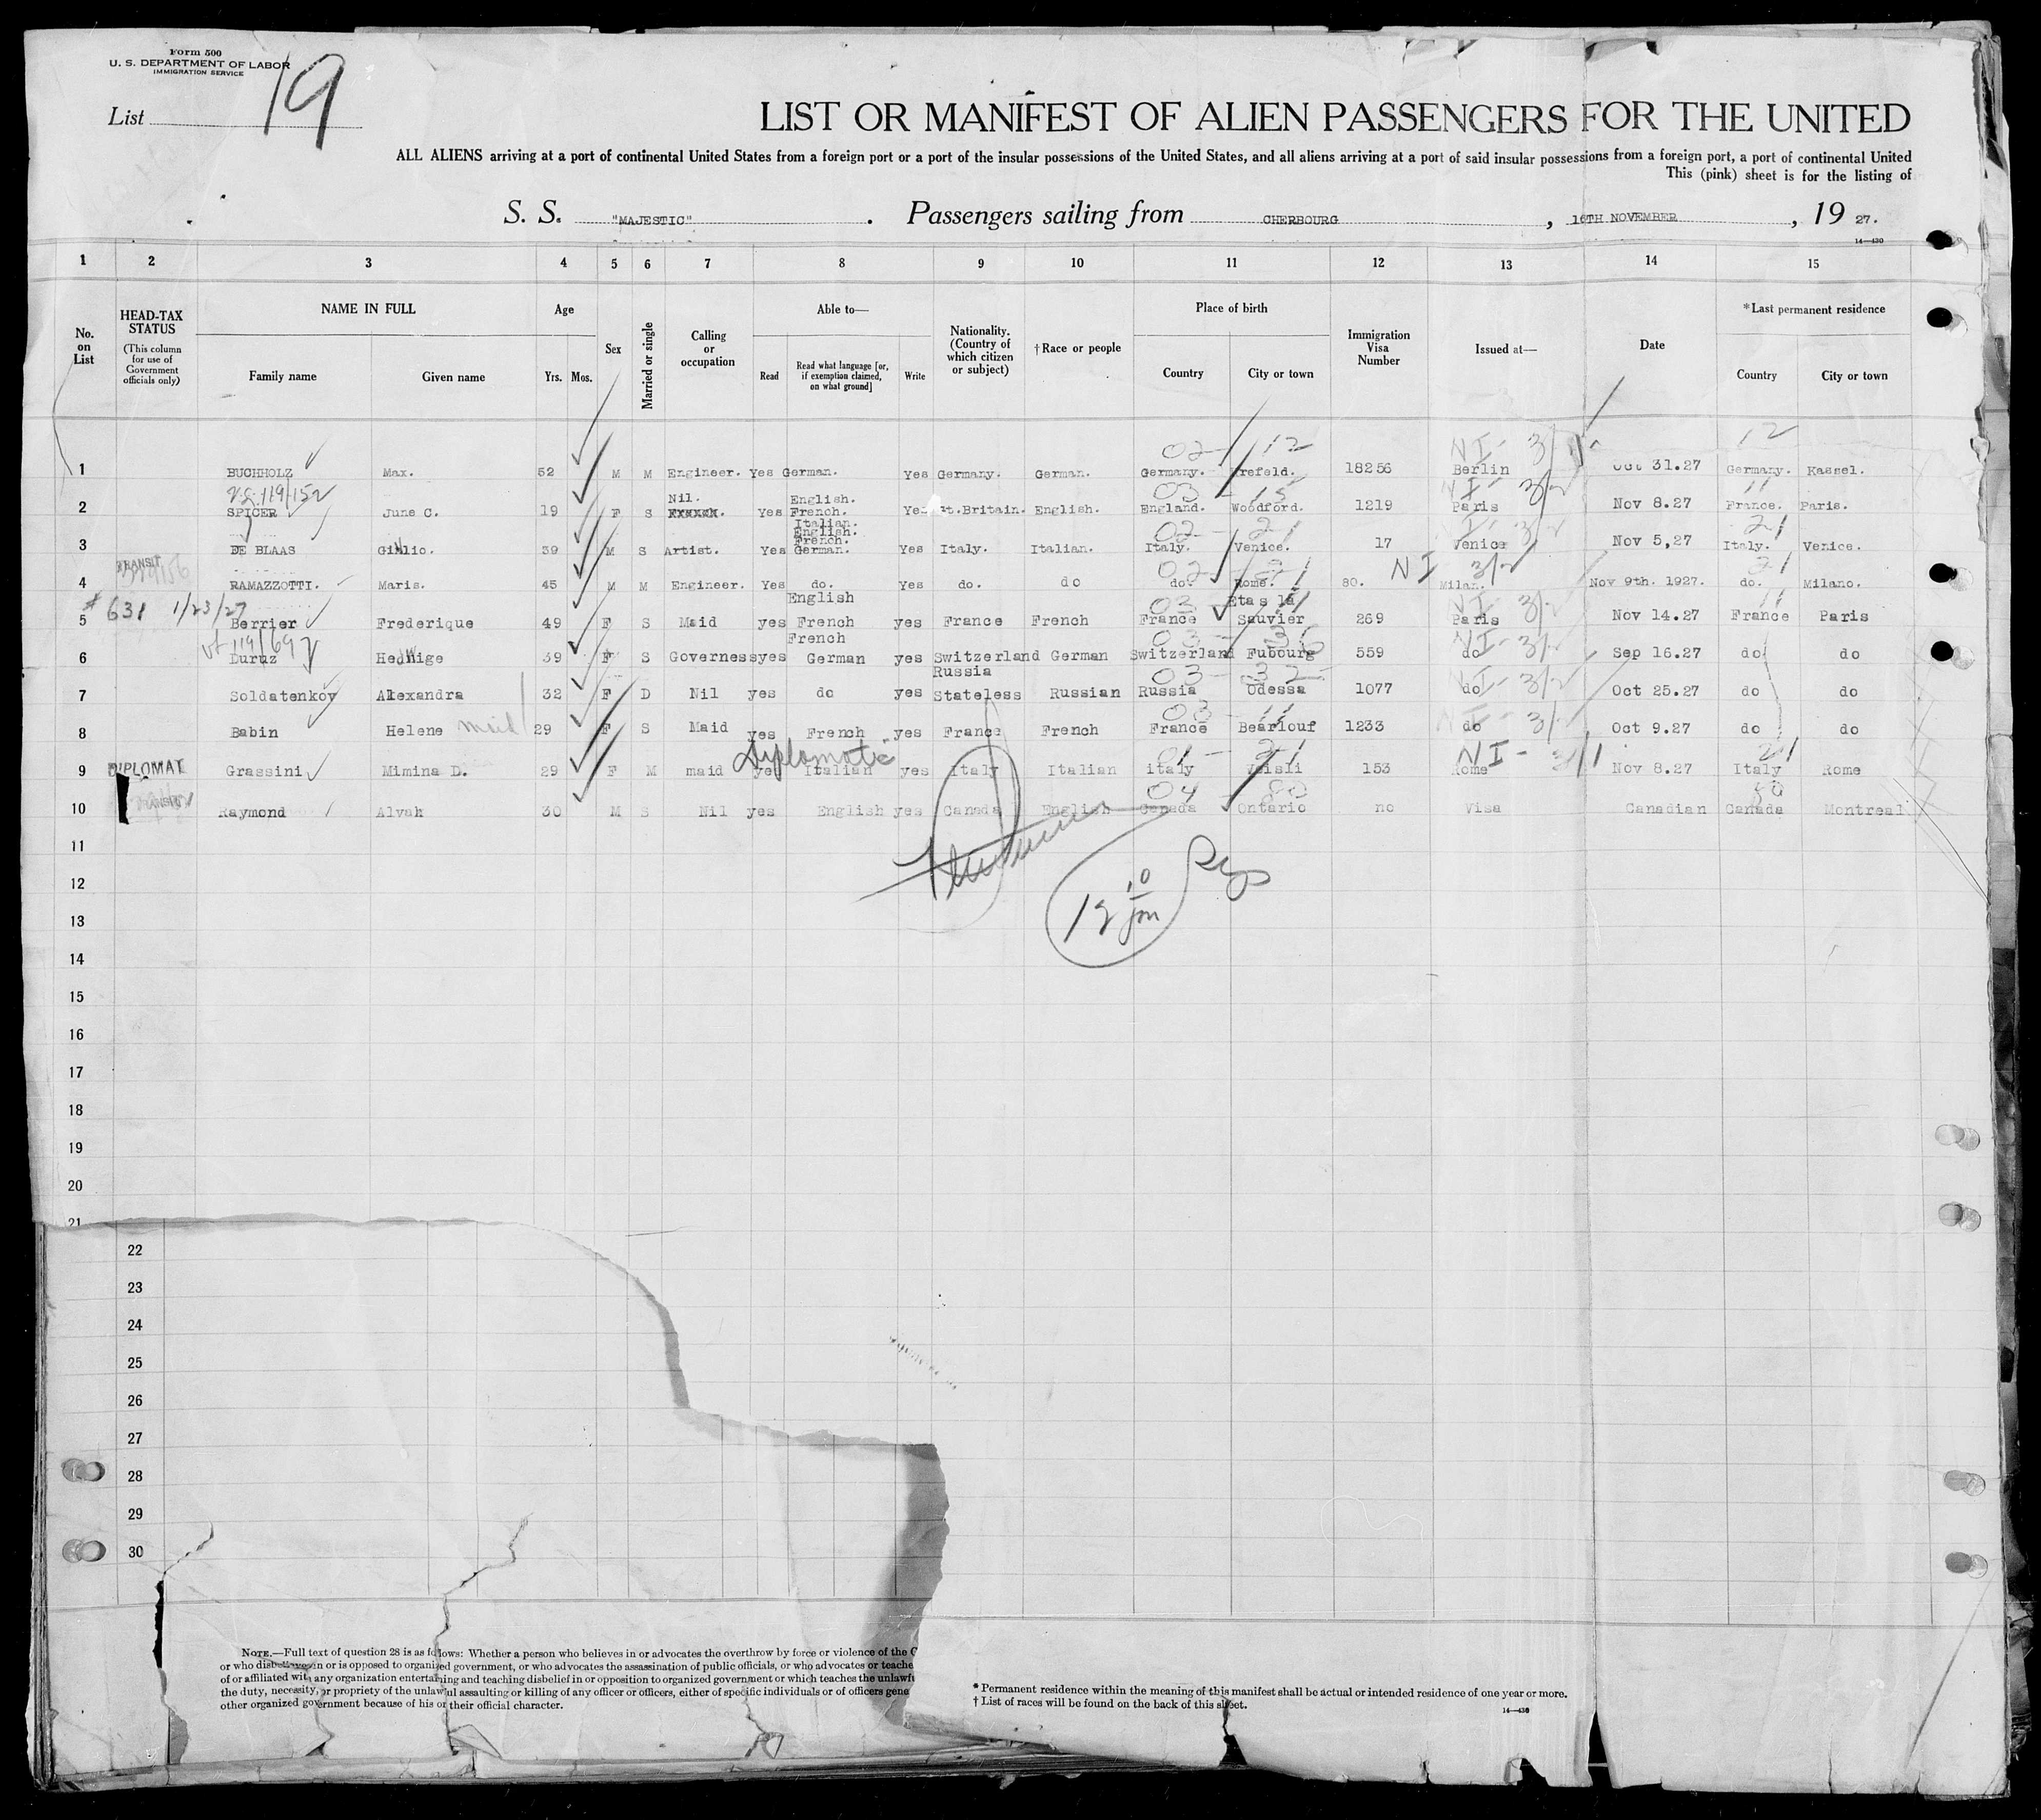 Form 500
U. S. DEPARTMENT OF LABOR
IMMIGRATION SERVICE
List 19
LIST OR MANIFEST OF ALIEN PASSENGERS FOR THE UNITED
ALL ALIENS arriving at a port of continental United States from a foreign port or a port of the insular possessions of the United States, and all aliens arriving at a port of said insular possessions from a foreign port, a port of continental United
This (pink) sheet is for the listing of
S. S. "MAJESTIC" . Passengers sailing from CHERBOURG , 16TH NOVEMBER , 19 27.
14—430
1 2 3 4 5 6 7 8 9 10 11 12 13 14 15
No. on List
HEAD-TAX STATUS
(This column for use of Government officials only)
NAME IN FULL
Family name Given name
Age
Yrs. Mos.
Sex
Married or single
Calling or occupation
Able to—
Read
Read what language [or, if exemption claimed, on what ground]
Write
Nationality. (Country of which citizen or subject)
†Race or people
Place of birth
Country City or town
Immigration Visa Number
Issued at—
Date
*Last permanent residence
Country City or town
02 - 12 NI - 3/1 12
1 BUCHHOLZ Max. 52 M M Engineer. Yes German. Yes Germany. German. Germany. Krefeld. 18256 Berlin Oct 31.27 Germany. Kassel.
119/152 Nil. English. 03 - 15 NI - 3/2 11
2 SPICER June C. 19 F S Yes French. Yes Gt.Britain. English. England. Woodford. 1219 Paris Nov 8.27 France. Paris.
Italian.
English.
French. 02 - 21 I - 3/2 21
3 DE BLAAS Giulio. 39 M S Artist. Yes German. Yes Italy. Italian. Italy. Venice. 17 Venice Nov 5,27 Italy. Venice.
TRANSIT 02 - 21 NI 3/2 21
4 RAMAZZOTTI. Maris. 45 M M Engineer. Yes do. Yes do. do do. Rome. 80. Milan. Nov 9th. 1927. do. Milano.
# 631 1/23/27 English 03 - 11 Etas la NI - 3/2 11
5 Berrier Frederique 49 F S Maid yes French yes France French France Sauvier 269 Paris Nov 14.27 France Paris
119/697 French 03 - 36 NI - 3/2
6 Duruz Hedwige 39 F S Governess yes German yes Switzerland German Switzerland Fubourg 559 do Sep 16.27 do do
Russia 03 - 32 NI - 3/2
7 Soldatenkov Alexandra 32 F D Nil yes do yes Stateless Russian Russia Odessa 1077 do Oct 25.27 do do
03 - 11 NI - 3/2
8 Babin Helene maid 29 F S Maid yes French yes France French France Bearlouf 1233 do Oct 9.27 do do
DIPLOMAT Diplomatic 01 - 21 NI - 3/1 21
9 Grassini Mimina D. 29 F M maid yes Italian yes Italy Italian italy 153 Rome Nov 8.27 Italy Rome
TRANSIT 04 - 80 80
10 Raymond Alvah 30 M S Nil yes English yes Canada English Canada Ontario no Visa Canadian Canada Montreal
11
12
13
14
15
16
17
18
19
20
21
22
23
24
25
26
27
28
29
30
NOTE.—Full text of question 28 is as follows: Whether a person who believes in or advocates the overthrow by force or violence of the
or who disbelieves in or is opposed to organized government, or who advocates the assassination of public officials, or who advocates or teache
of or affiliated with any organization entertaining and teaching disbelief in or opposition to organized government or which teaches the unlawf
the duty, necessity, or propriety of the unlawful assaulting or killing of any officer or officers, either of specific individuals or of officers gene
other organized government because of his or their official character.
* Permanent residence within the meaning of this manifest shall be actual or intended residence of one year or more.
† List of races will be found on the back of this sheet.
14—430